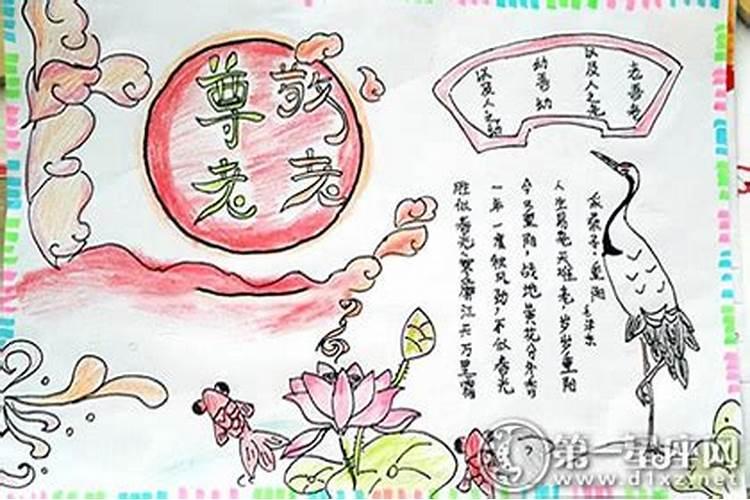 敬老
尊老
老善老
以及人之老
幼善幼
以及人之幼
采桑子·重阳 毛泽东
人生易老天难老,岁岁重阳
今又重阳,战地黄花分外香
一年一度秋风劲,不似春光
胜似春光,寥廓江天万里霜
第一星座网
www.d1xz.net